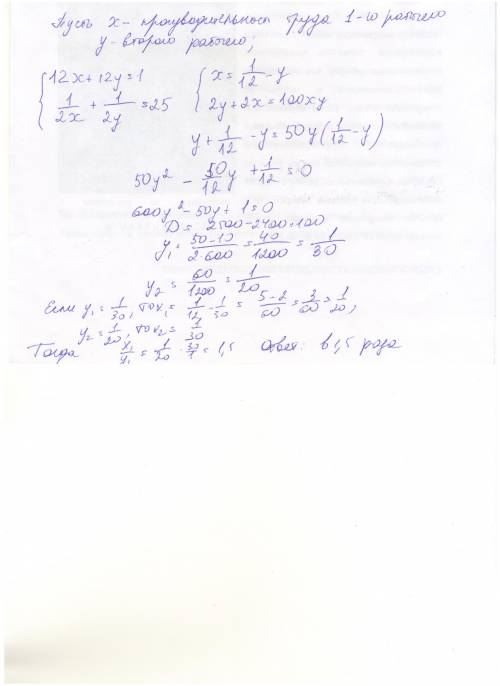 Пусть x - производительность труда 1-го рабочего
y - второго рабочего;
{ 12x+12y=1 { x = 1/12 - y
1/2x + 1/2y = 25 2y+2x=100xy
y + 1/12 - y = 50y(1/12 - y)
50y² - 50/12 y + 1/12 = 0
600y² - 50y + 1 = 0
D = 2500-2400=100
y₁ = 50-10/2·600 = 40/1200 = 1/30
y₂ = 60/1200 = 1/20
Если y₁ = 1/30, то x₁ = 1/12 - 1/30 = 5-2/60 = 3/60 = 1/20,
y₂ = 1/20, то x₂ = 1/30
Тогда x₁/y₁ = 1/20 · 30/1 = 1,5 Ответ: в 1,5 раза